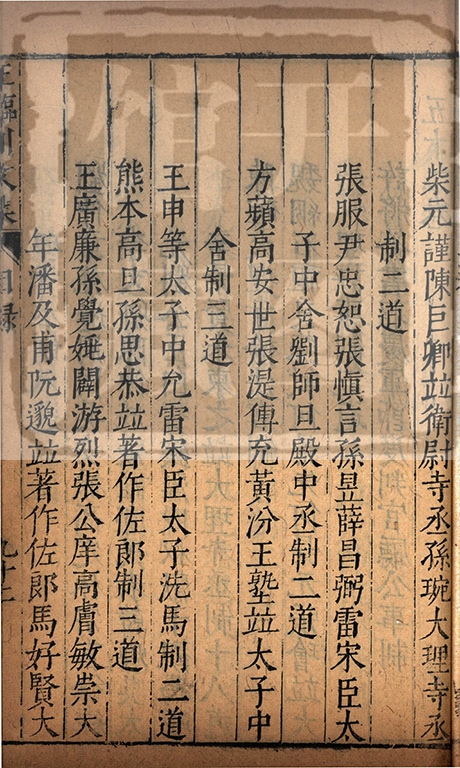 柴元謹陳巨卿竝衛尉寺丞孫琬大理寺丞
制二道
張服尹忠恕張愼言孫昱薛昌弼雷宋臣太
子中舍劉師旦殿中丞制二道
方蘋高安世張湜傅充黃汾王塾竝太子中
舍制三道
王申等太子中允雷宋臣太子洗馬制二道
熊本高旦孫思恭竝著作佐郎制三道
王廣廉孫覺姚闢游烈張公庠高膚敏崇大
年潘及甫阮邈竝著作佐郎馬好賢大
王臨川文集 目錄